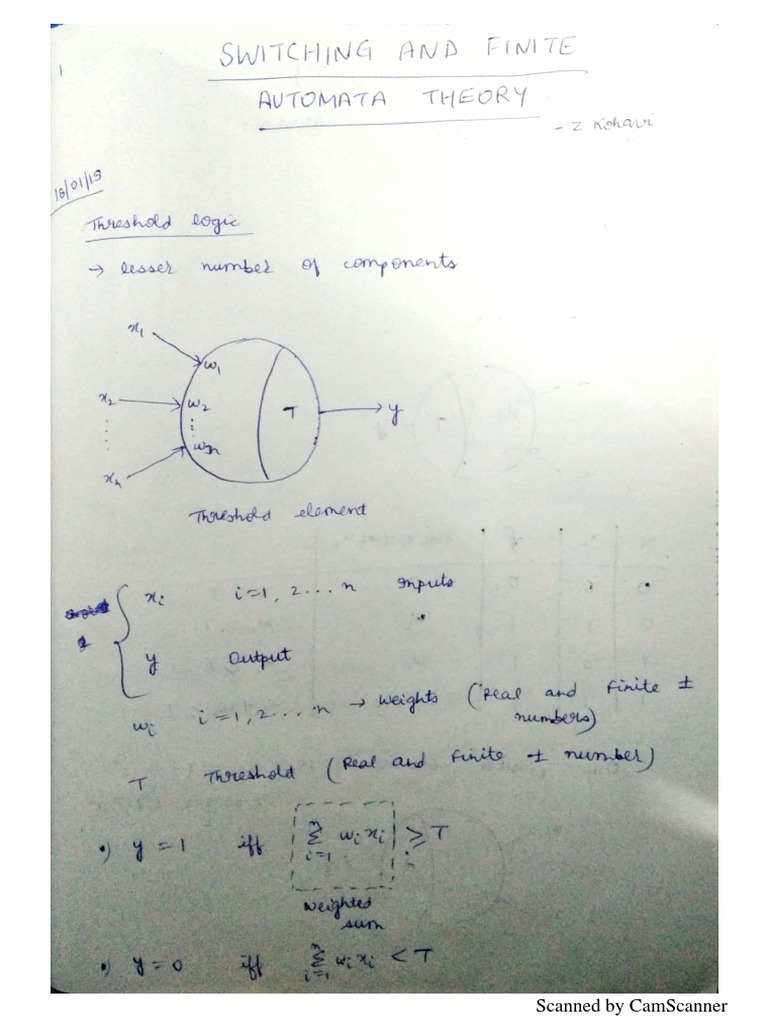 1
SWITCHING AND FINITE
AUTOMATA THEORY
- Z Kohavi
18/01/19
Threshold logic
→ lesser number of components
x₁
w₁
x₂
w₂
T
y
wₙ
xₙ
Threshold element
xᵢ i=1, 2...n Inputs
y Output
wᵢ i=1, 2....n → Weights (Real and finite ±
numbers)
T Threshold (Real and finite ± number)
•) y = 1 iff ∑ᵢ₌₁ⁿ wᵢxᵢ ≥ T
Weighted
sum
•) y = 0 iff ∑ᵢ₌₁ⁿ wᵢxᵢ < T
Scanned by CamScanner